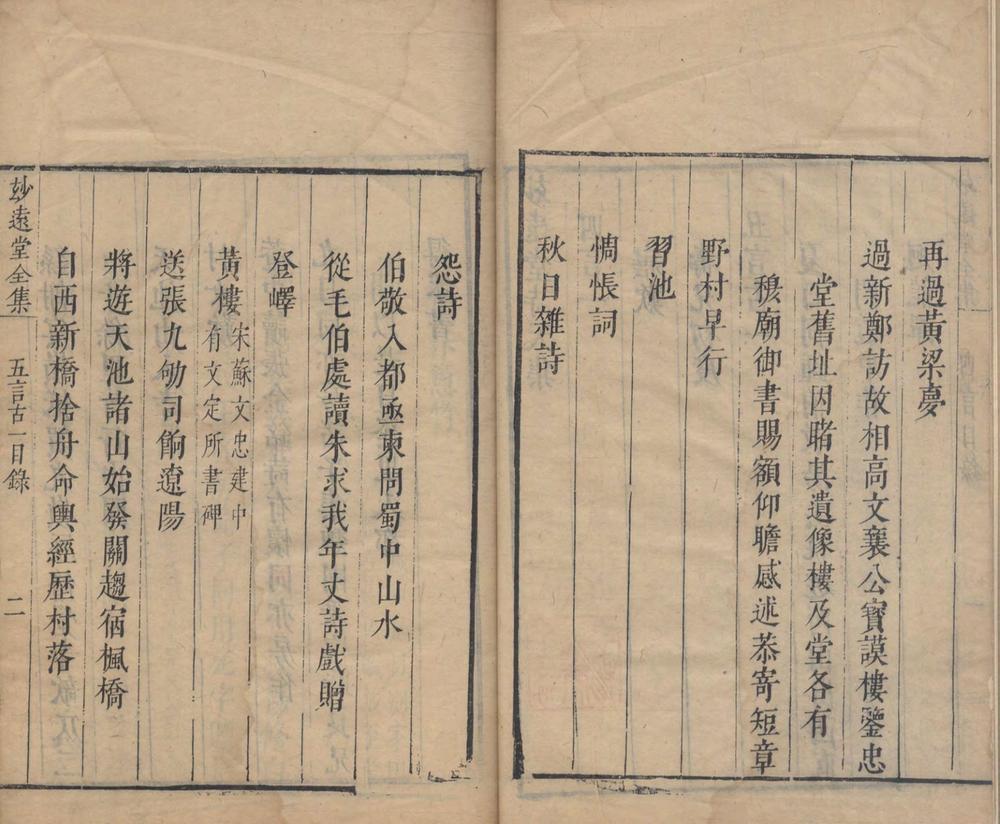 再過黃梁夢
過新鄭訪故相高文襄公寶謨樓鑒忠
堂舊址因睹其遺像樓及堂各有
穆廟御書賜額仰瞻感述恭寄短章
野村早行
習池
惆悵詞
秋日雜詩
怨詩
伯敬入都亟柬問蜀中山水
從毛伯處讀朱求我年丈詩戲贈
登嶧
黃樓宋蘇文忠建中
有文定所書碑
送張九劬司餉遼陽
將遊天池諸山始發關趨宿楓橋
自西新橋捨舟命輿經歷村落
玅遠堂全集 五言古一目錄 二